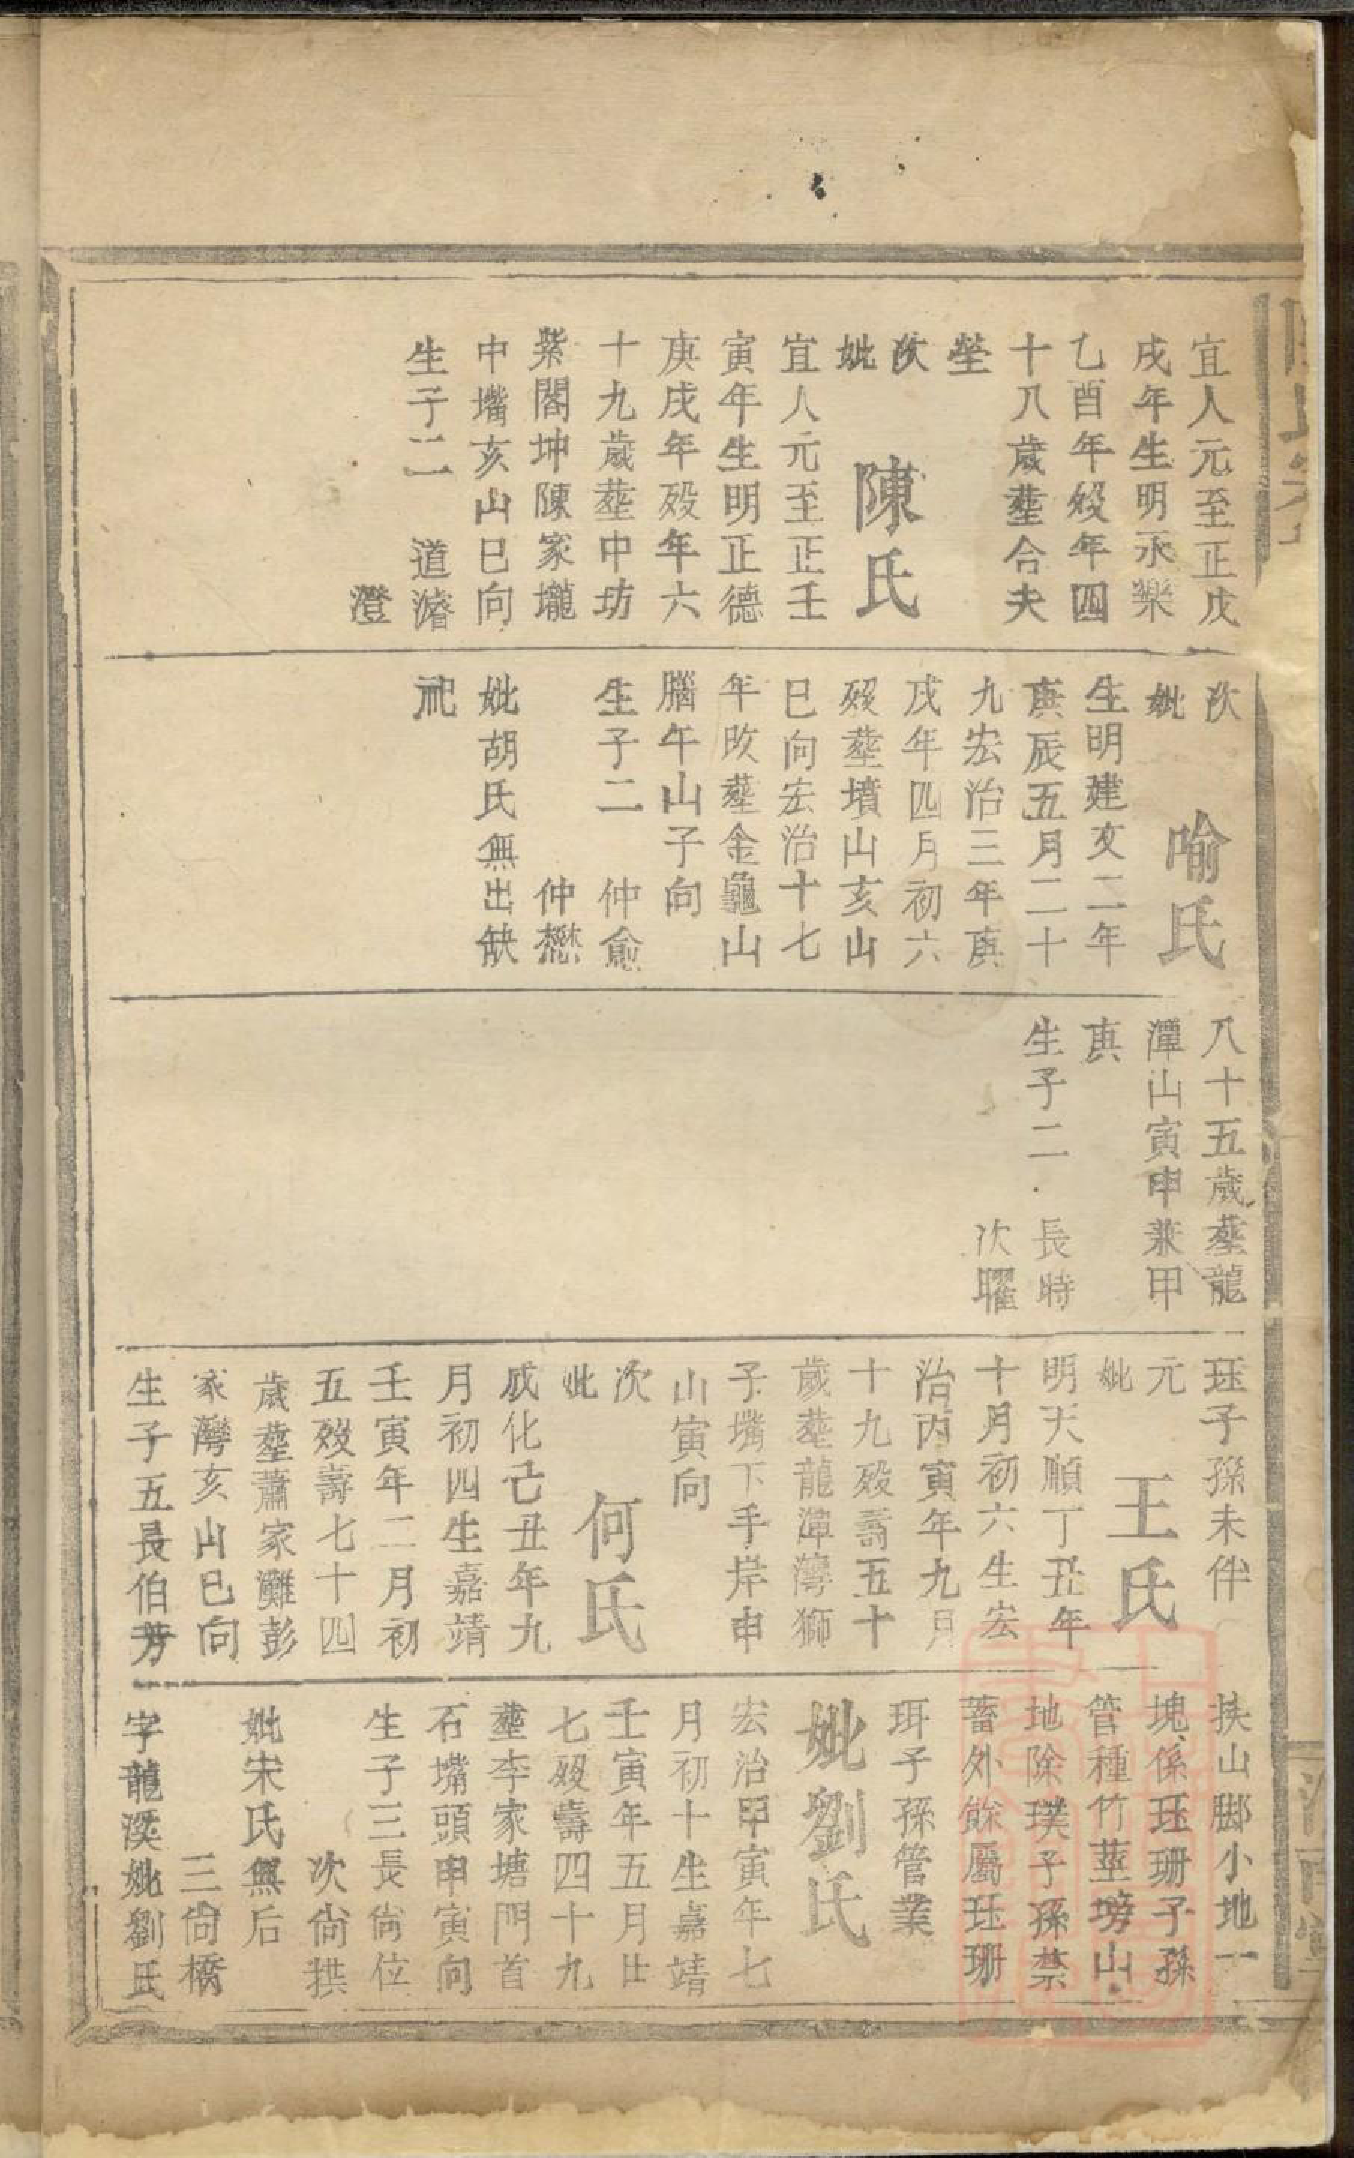 宜人元至正戊
戌年生明永樂
乙酉年殁年四
十八歲塟合夫
塋
次
妣
陳氏
宜人元至正壬
寅年生明正德
庚戌年殁年六
十九歲塟中坊
紫閣坤陳家壠
中嘴亥山巳向
生子二 道濬
澄
次
妣
喻氏
生明建文二年
庚辰五月二十
九宏治三年庚
戌年四月初六
殁塟墳山亥山
巳向宏治十七
年改塟金龜山
腦午山子向
生子二 仲愈
仲懋
妣胡氏無出缺
祀
八十五歲塟龍
潭山寅申兼甲
庚
生子二 長時
次曜
珏子孫未伴
元
妣
王氏
明天順丁丑年
十月初六生宏
治丙寅年九月
十九殁壽五十
歲塟龍潭灣獅
子嘴下手岸申
山寅向
次
妣
何氏
成化己丑年九
月初四生嘉靖
壬寅年二月初
五殁壽七十四
歲塟蕭家灘彭
家灣亥山巳向
生子五長伯芳
挾山脚小地一
塊係珏珊子孫
管種竹莖塝山
地除璞子孫禁
蓄外餘屬珏珊
珥子孫管業
妣劉氏
宏治甲寅年七
月初十生嘉靖
壬寅年五月廿
七殁壽四十九
塟李家塘門首
石嘴頭申寅向
生子三長尙位
次尙拱
妣宋氏無后
三尙橋
字龍溪妣劉氏